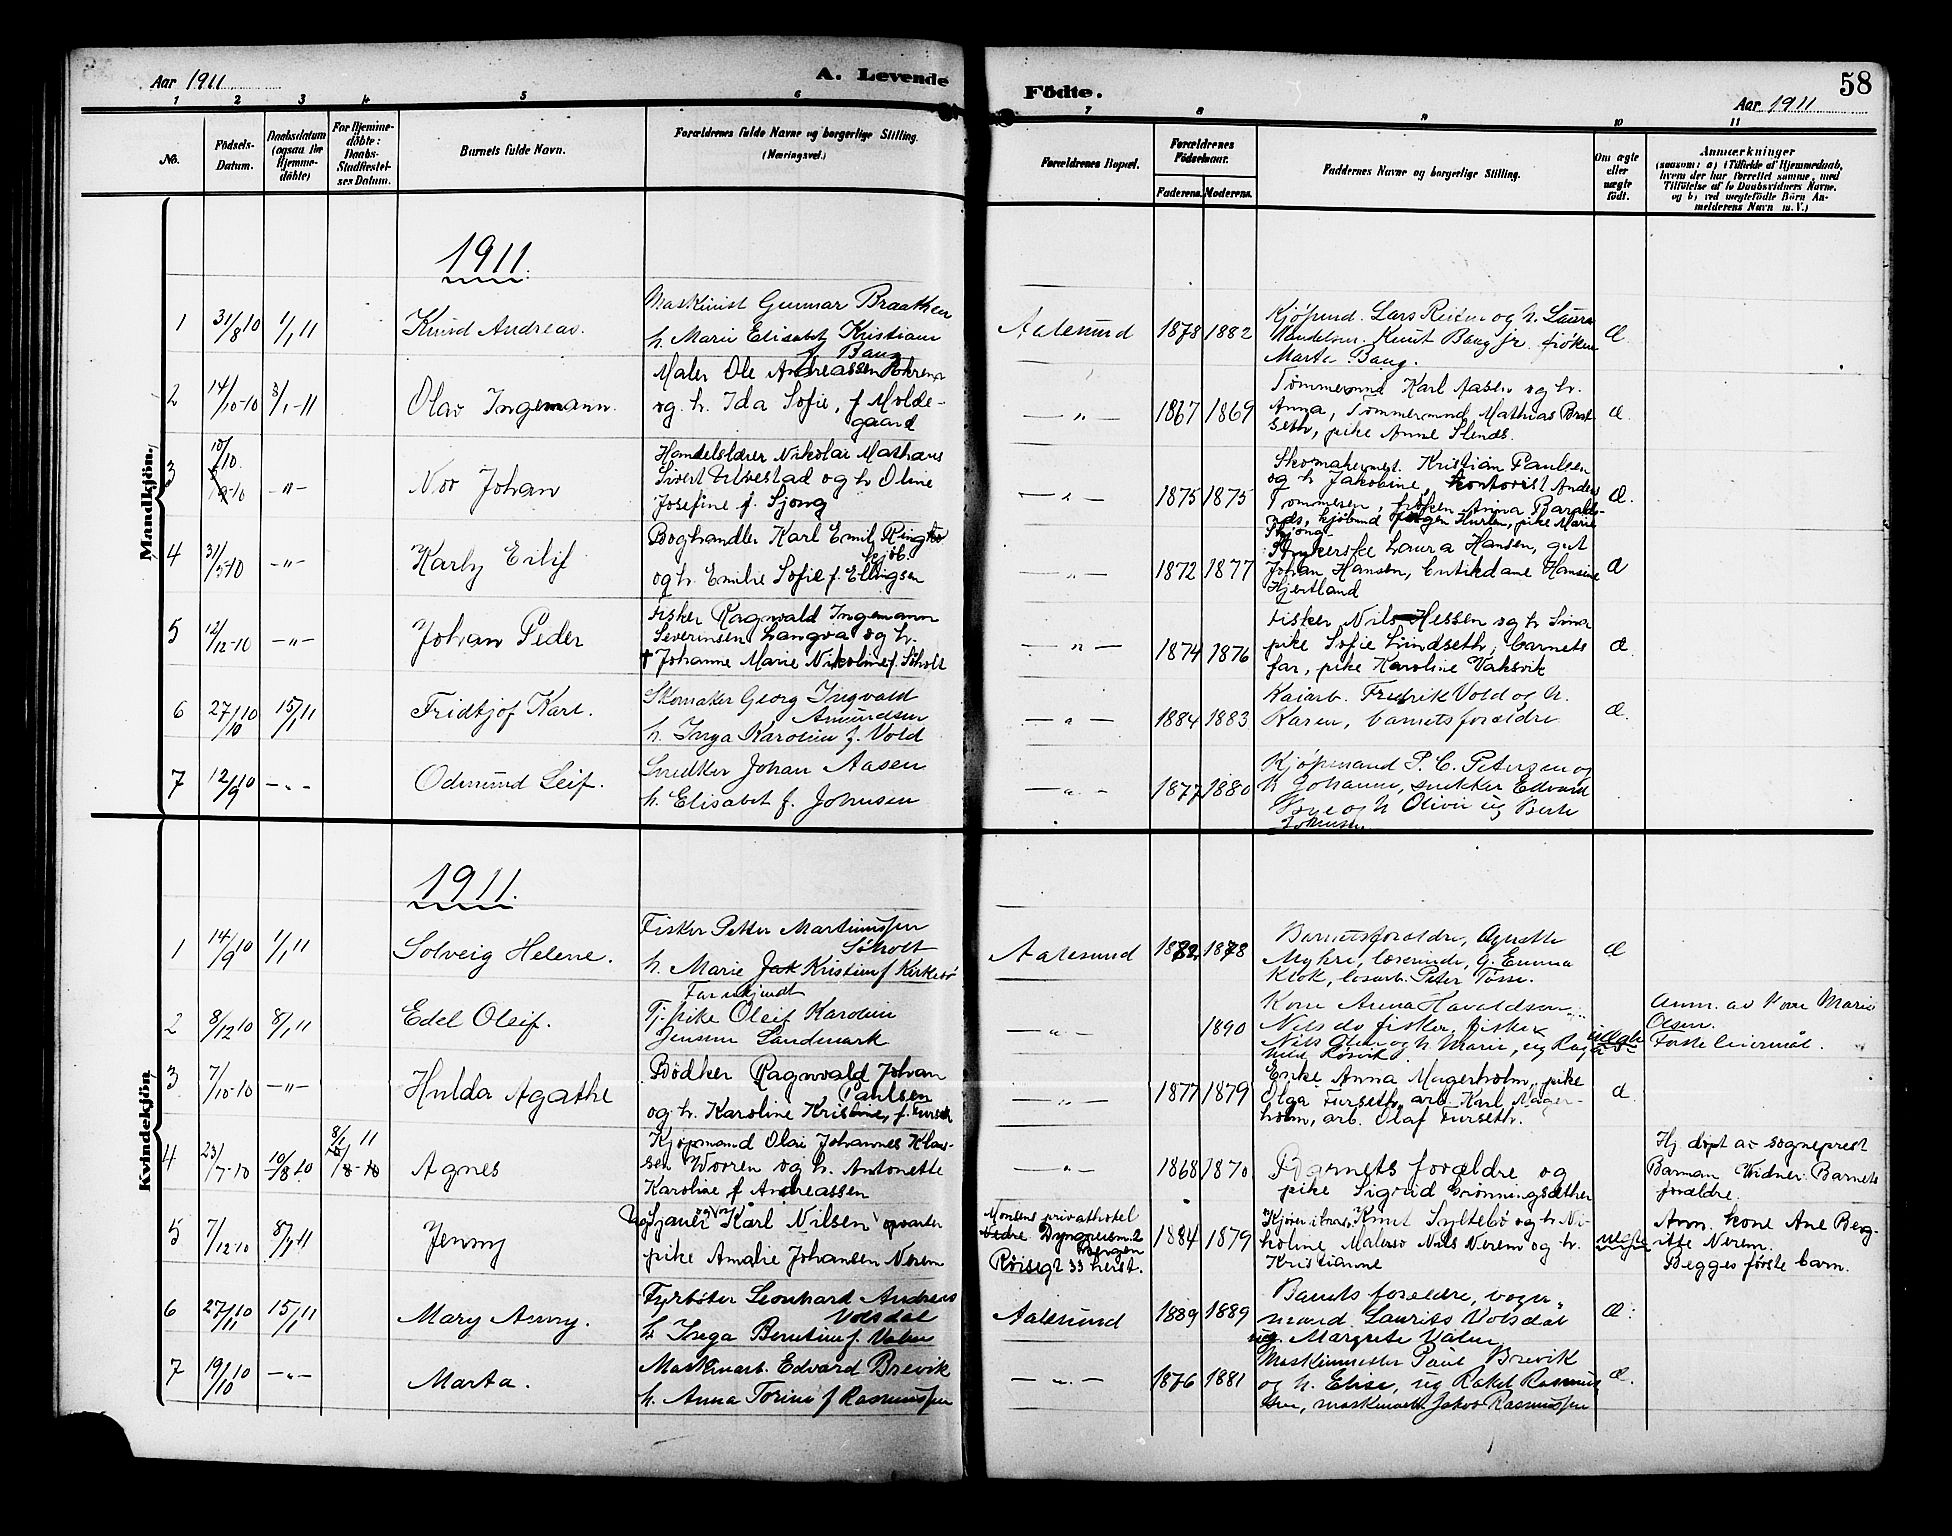 Aar 1911
A. Levende
Födte.
58
Aar 1911
1 2 3 4 5 6 7 8 9 10 11
No.
Födsels-
Datum.
Daabsdatum
(ogsaa for
Hjemme-
döbte)
For Hjemme-
döbte:
Daabs-
Stadfæstel-
ses Datum.
Barnets fulde Navn.
Forældrenes fulde Navne og borgerlige Stilling.
(Næringsvei.)
Forældrenes Bopæl.
Forældrenes
Födselsaar.
Faderens. Moderens.
Faddernes Navne og borgerlige Stilling.
Om ægte
eller
uægte
født.
Anmærkninger
(saasom: a) i Tilfælde af Hjemmedaab,
hvem der har forrettet samme, med
Tilföielse af to Daabsvidners Navne,
og b) ved uægtefödte Börn An-
melderens Navn m. V.)
Mandkjön.
1911.
1 31/8 10 1/1 11
Knud Andreas.
Maskinist Gunnar Braathen
h. Marie Elisabet Kristiane
f. Bang
Aalesund
1878 1882
Kjøpmd. Lars Reiten og h. Laura
Knut Bang jr. frøken
Marta Bang.
Æ.
2 14/10-10 8/1-11
Olav Ingemann.
Maler Ole Andreassen
og h. Ida Sofie, f Molde-
gaard
— " —
1867 1869
Tømmermd Karl Aasen og h.
Anna, Tømmermnd Mathias Brat
seth, pike Anne Slends.
Æ.
3 10/10 -10 — " —
Nov Johan
Handelslærer Nikolai Mathæus
Sivert Ulvestad og h Oline
Josefine f. Sjong
— " —
1875 1875
Skomakermest. Kristian Paulsen
og h Jakobine, Kontorist Anders
Tommesen, frøken Anna
kjøbmd Jørgen Hurlen, pike Marie
Sjong
Æ.
4 31/5-10 — " —
Karly Eilif
Boghandler Karl Emil Ringkø
kjøb.
og h. Emilie Sofie f. Ellingsen
— " —
1872 1877
Strykerske Laura Hansen, gut
Johan Hansen, Butikdame Hansine
Hjertland
Æ
5 12/12-10 — " —
Johan Peder
Fisker Ragnvald Ingemann
Severinsen Langva og h.
† Johanne Marie Nikoline f. Søholt
— " —
1874 1876
Fisker Nils Hessen og h Sina
pike Sofie Lindseth, barnets
far, pike Karoline Vaksvik
Æ.
6 27/10 10 15/1 11
Fridtjof Karl.
Skomaker Georg Ingvald
Amundsen
h. Inga Karoline f. Vold
— " —
1884 1883
Kaiarb. Fredrik Vold og h.
Karen, barnets forældre
Æ.
7 12/9 10 — " —
Odmund Leif.
Snedker Johan Aasen
h. Elisabet f. Johnsen
— " —
1877 1880
Kjøpmand P. C. Petersen og
h Johanne, snekker Edvard
og h Olivie ug Berte
Johnsen
Kvindekjön
1911.
1 14/9 10 1/1 11
Solveig Helene.
Fisker Petter Martinussen
Søholt
h. Marie Kristine f Kirkebø
Aalesund
1872 1878
Barnets forældre, Agnethe
Myhre, læserinde, G. Emma
Klok, løsarb. Peter Tosse.
Æ
2 8/12 10 8/1 11
Edel Oleif.
Far ukjendt
Tj. pike Oleif Karoline
Jensen Sandmark
— " —
1890
Kone Anna Havaldsen
Nils do fisker, fisker
Nils Olsen og h Marie, ug Rag
hild Røsvik
uægte
Anm. av kone Marie
Olsen.
Første leiermål.
3 7/10-10 — " —
Hulda Agathe
Bødker Ragnvald Johan
Paulsen
og h. Karoline Kristine, f. Furseth
— " —
1877 1879
Enke Anna Magerholm, pike
Olga Furseth, arb Karl Mager-
holm, arb. Olaf Furseth.
Æ.
4 23/7-10 10/8 10 8/1 11
Agnes
Kjøpmand Olai Johannes Klau-
sen Worren og h. Antonette
Karoline f Andreassen
— " —
1868 1870
Barnets forældre og
pike Sigrid Grønningsæther
Hj. døpt av sogneprest
Barman Vidner: Barnets
forældre.
5 7/12-10 8/1-11
Jenny
Ug Sjauer Karl Nilsen opvarter
pike Amalie Johansen Nerem
Monsens privathotel
nedre Dyngeism. 2
Bergen
Røisegt 33 herst.
1884 1879
Knut Syltebø og h. Ni-
koline Malersv Nils Nerem og h.
Kristianne
uægte
Anm. kone Ane Berg-
itte Nerem.
Begges første barn.
6 27/11 10 15/1 11
Mary Anny.
Fyrbøter Leonhard Andreas
Volsdal
h Inga Berntine f. Valen
Aalesund
1889 1889
Barnets forældre, vogn-
mand Laurits Volsdal
ug. Margrete Valen
Æ.
7 19/10 10 — " —
Marta.
Maskinarb. Edvard Brevik
h. Anna Torine f Rasmussen
— " —
1876 1881
Maskinmester Paul Brevik
og h. Elise, ug Rakel Rasmus
sen, maskinarb. Jakob Rasmussen
Æ.